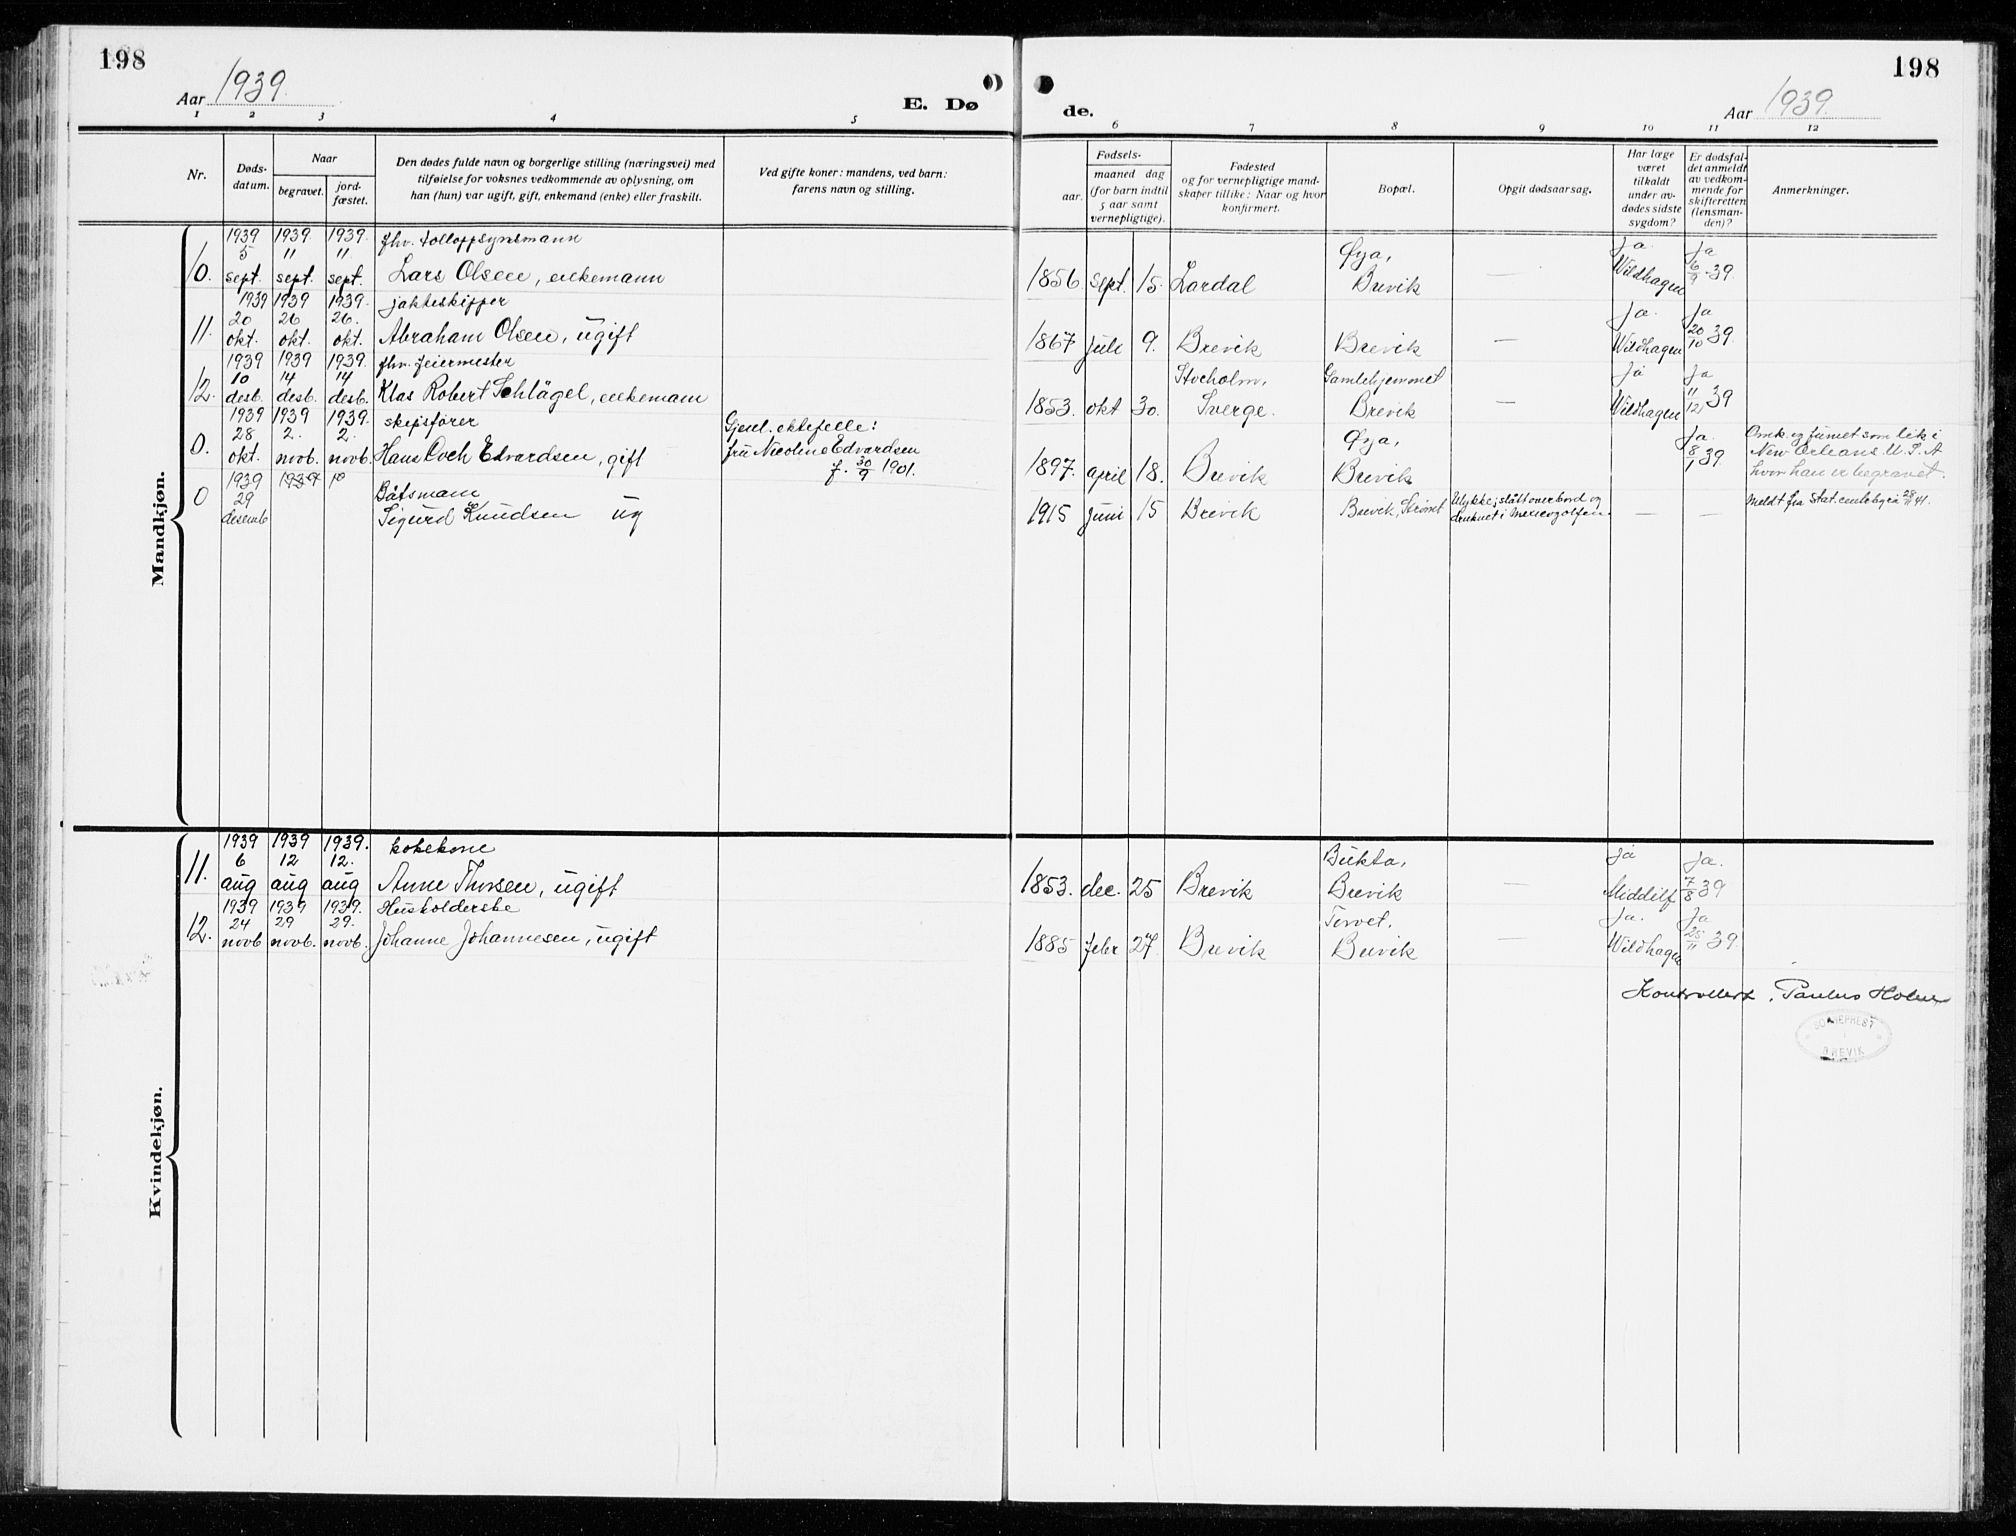 198
Aar 1939.
E. Dø
1 2 3 4 5
Nr.
Døds-
datum.
Naar
begravet.
jord-
fæstet.
Den dødes fulde navn og borgerlige stilling (næringsvei) med
tilføielse for voksnes vedkommende av oplysning, om
han (hun) var ugift, gift, enkemand (enke) eller fraskilt.
Ved gifte koner: mandens, ved barn:
farens navn og stilling.
Mandkjøn.
1939 1939. 1939. fhv. tolloppsynsmann
5 11 11.
10. sept. sept. sept. Lars Olsen, enkemann
1939 1939 1939. jakteskipper
20 26 26.
11. okt. okt. okt. Abraham Olsen, ugift
1939 1939 1939. fhv. feiermester
10 14 14
12. desb. desb. desb. Klas Robert Schlägel, enkemann
1939 1939 1939. skipsfører
28 2. 2.
0. okt. novb. novb. Hans Coch Edvardsen, gift
Gjenl. ektefelle:
fru Nicoline Edvardsen
f. 30/9 1901.
1939 1939
29 Båtsmann
0 desemb Sigurd Knudsen ug
Kvindekjøn.
1939 1939 1939. kokekone
6 12 12.
11. aug aug aug Anne Thorsen, ugift
1939 1939 1939. Husholderske
24 29 29.
12. novb novb. novb. Johanne Johannesen, ugift
198
Aar 1939
de.
6 7 8 9 10 11 12
Fødsels-
aar.
maaned dag
(for barn indtil
5 aar samt
vernepligtige).
Fødested
og for vernepligtige mand-
skaper tillike: Naar og hvor
konfirmert.
Bopæl.
Opgit dødsaarsag.
Har læge
været
tilkaldt
under av-
dødes sidste
sygdom?
Er dødsfal-
det anmeldt
av vedkom-
mende for
skifteretten
(lensman-
den)?
Anmerkninger.
Øya, Ja. Ja
1856. sept. 15. Lardal Brevik — Wildhagen 6/9 39.
Ja. Ja
1867 juli 9. Brevik Brevik — Wildhagen 20/10 39.
Stocholm, Gamlehjemmet Ja Ja
1853. okt 30. Sverge. Brevik — Wildhagen 11/12 39
Øya, Ja.
1897. april 18. Brevik Brevik 8/1 39
Omk. og funnet som lik i
New Orleans U.S.A
hvor han er begravet.
1915 juni 15 Brevik Brevik,
Ulykke; slått overbord og
druknet i Mexicogolfen. — —
Meldt fra Stat. centalbyrå 28/11 41.
Bukta, Ja Ja.
1853. dec. 25 Brevik Brevik — Middilf 7/8 39
Torvet. Ja. Ja
1885 febr 27. Brevik Brevik — Wildhagen 25/11 39.
Kontrollert, Paulus Holm
SOKNEPREST
I
BREVIK